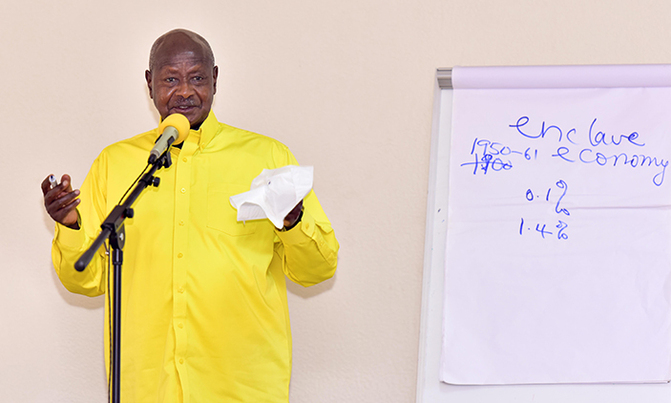 enclave
1950-61 economy
1900
0.1%
1.4%